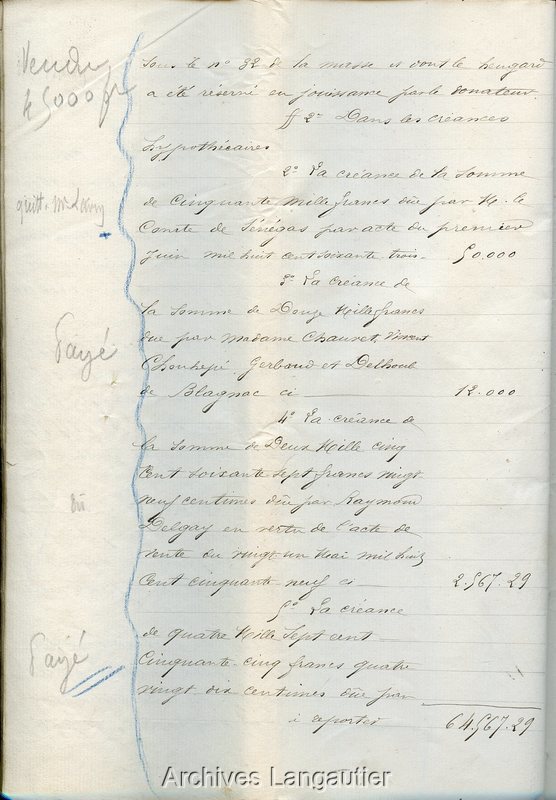 Vendu
45000 fr
Sous le nº 32 de la masse et dont le hengard
a été réservé en jouissance par le donateur
§ 2º Dans les créances
hypothécaires
2º La créance de la somme
de Cinquante Mille francs dûe par M. le
quitt.
Comte de Sénégas par acte du premier
Juin mil huit cent soixante trois. 50.000
3º La créance de
la somme de Douze Mille francs
dûe par Madame Chauvet, Vincent
Payé
Gerbaud et Delhoub
de Blagnac ci 12.000
4º La créance de
la somme de Deux Mille cinq
Cent soixante sept francs vingt
neuf centimes dûe par Raymond
dû
Delgay en vertu de l'acte de
vente du vingt un Mai mil huit
Cent cinquante neuf ci 2.567.29
5º La créance
de quatre Mille Sept cent
Payé
Cinquante cinq francs quatre
vingt dix centimes dûe par
à reporter 64.567.29
Archives Langautier